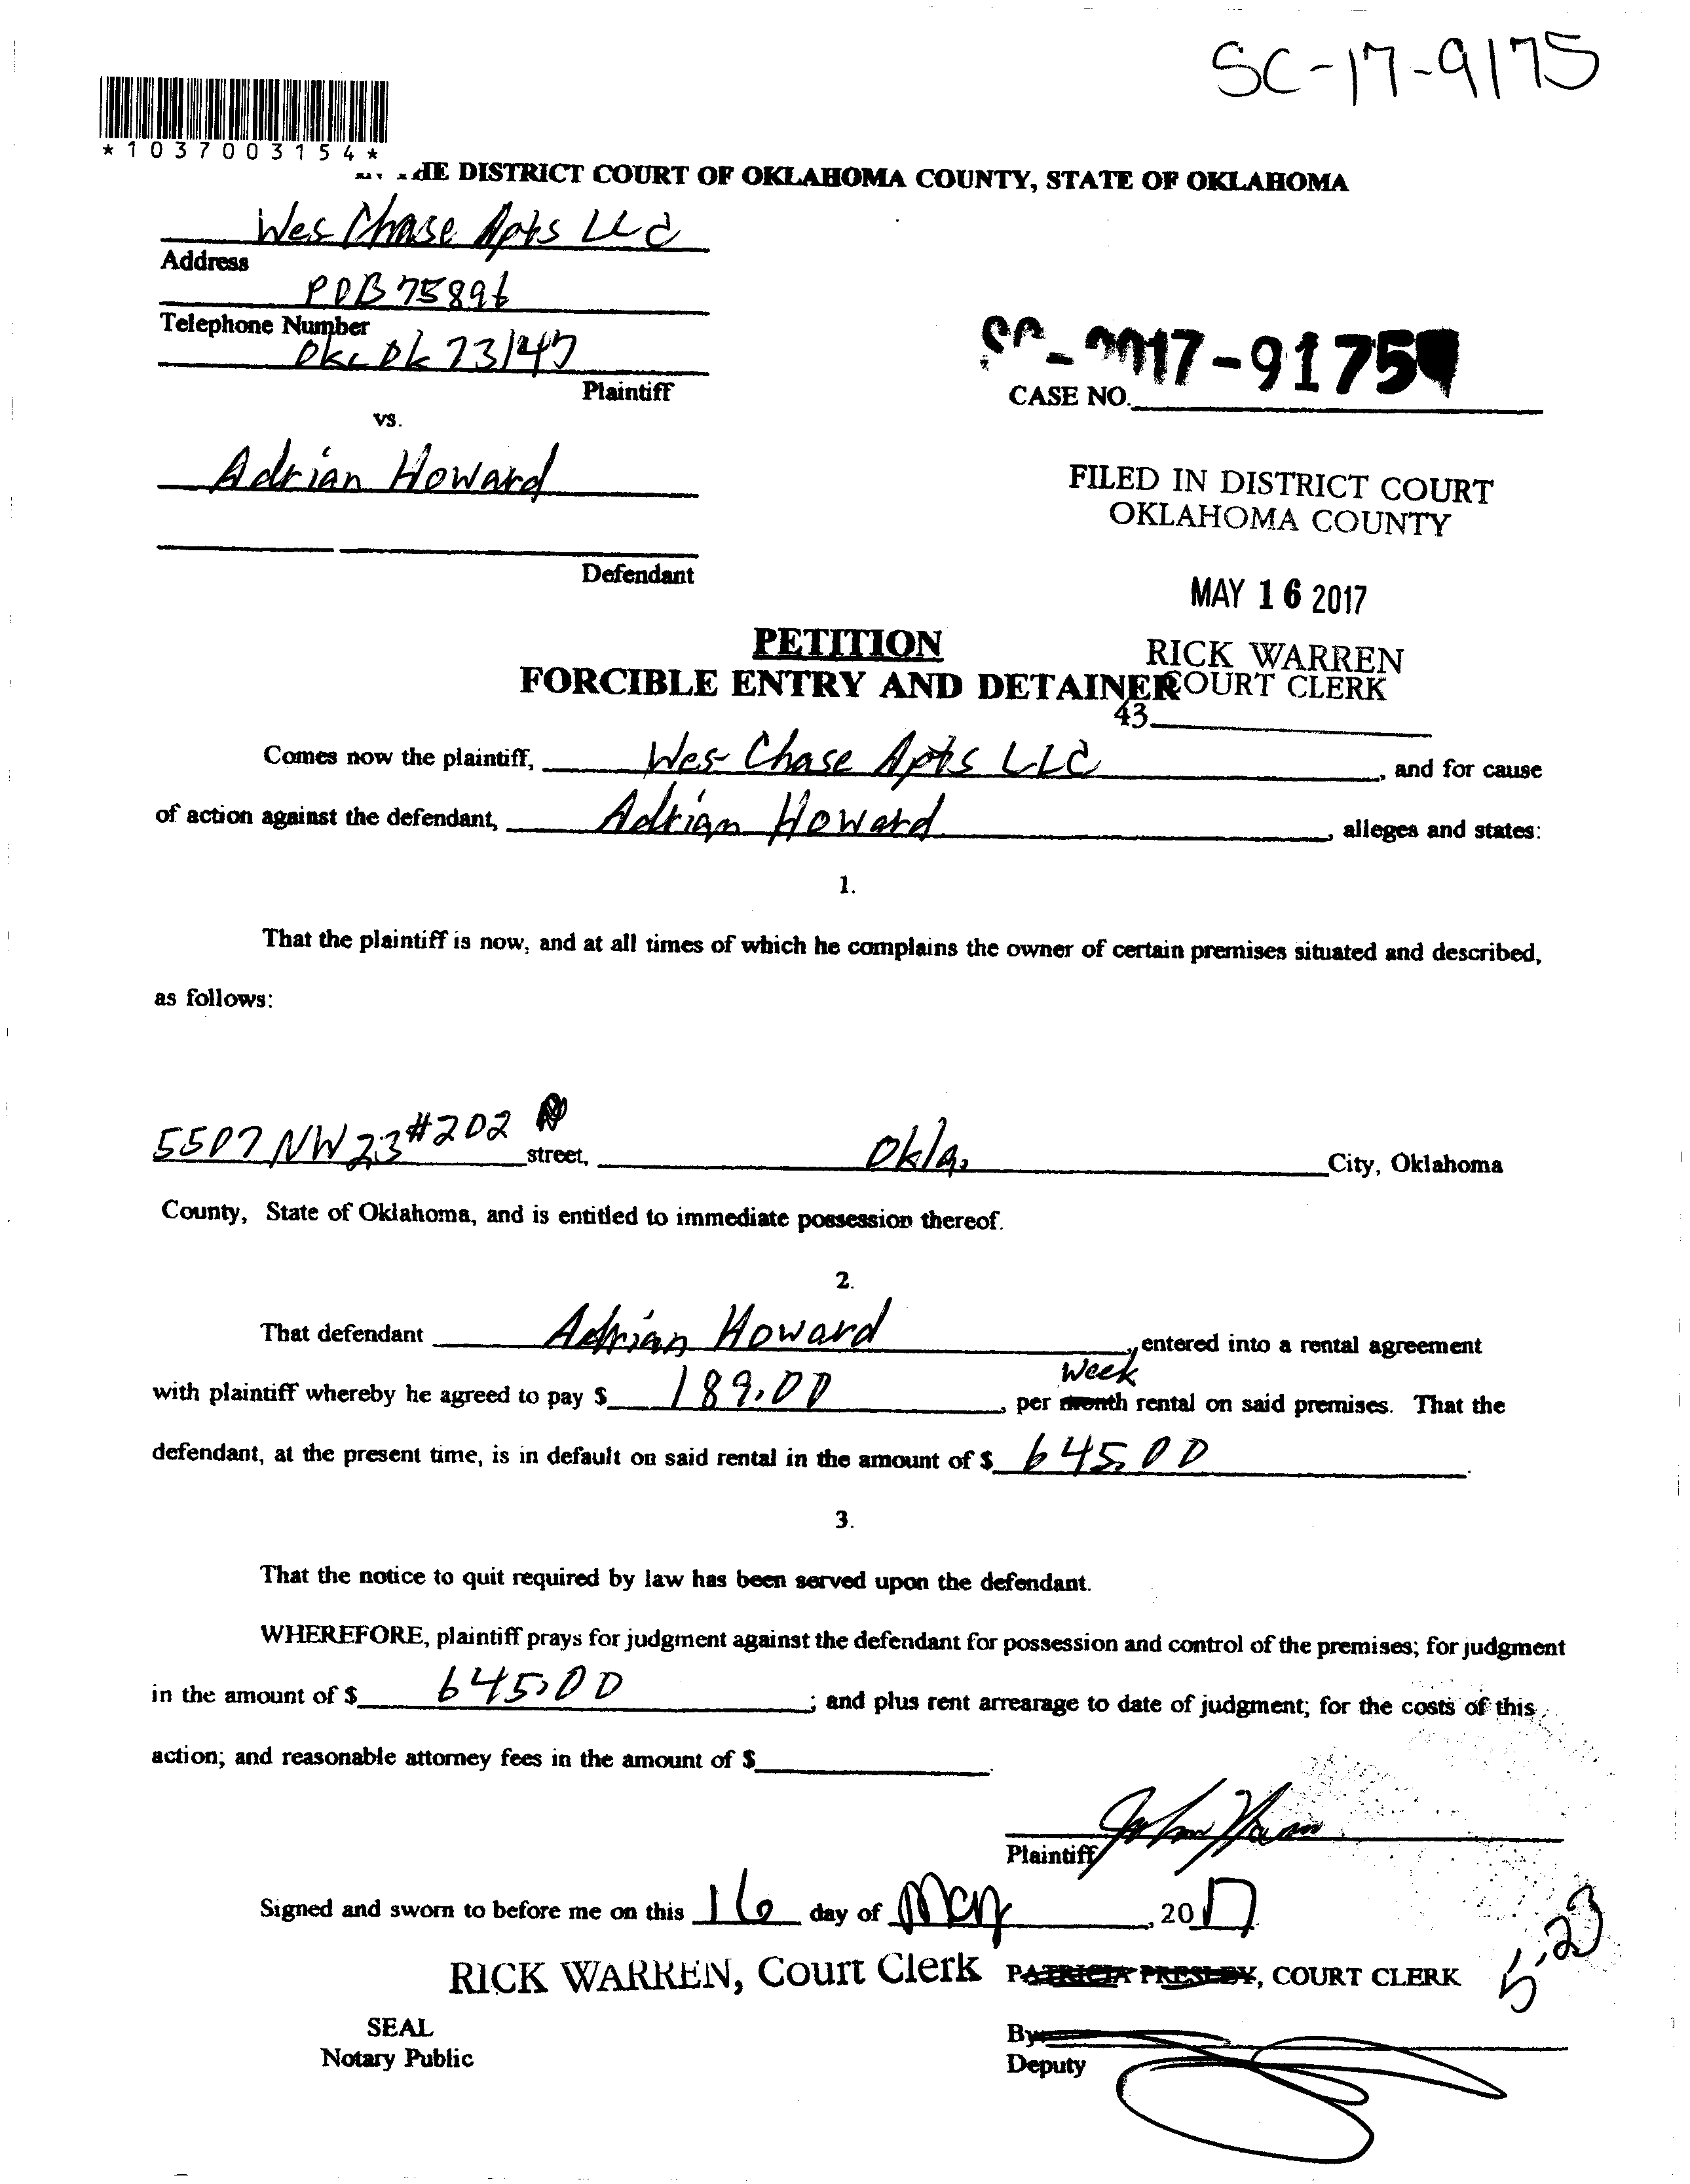 SC-17-9175
*1037003154*
HE DISTRICT COURT OF OKLAHOMA COUNTY, STATE OF OKLAHOMA
Wes Chase Apts LLC
Address
POB 75896
Telephone Number
Okc Ok 73147
Plaintiff
SC-2017-9175
CASE NO.
vs.
Adrian Howard
FILED IN DISTRICT COURT
OKLAHOMA COUNTY
Defendant
MAY 16 2017
PETITION
RICK WARREN
FORCIBLE ENTRY AND DETAINER
COURT CLERK
43
Comes now the plaintiff, Wes Chase Apts LLC, and for cause
of action against the defendant, Adrian Howard, alleges and states:
1.
That the plaintiff is now, and at all times of which he complains the owner of certain premises situated and described,
as follows:
5507 NW 23 #202 street, Okla. City, Oklahoma
County, State of Oklahoma, and is entitled to immediate possession thereof.
2.
That defendant Adrian Howard, entered into a rental agreement
Week
with plaintiff whereby he agreed to pay $ 189.00, per month rental on said premises. That the
defendant, at the present time, is in default on said rental in the amount of $ 645.00.
3.
That the notice to quit required by law has been served upon the defendant.
WHEREFORE, plaintiff prays for judgment against the defendant for possession and control of the premises; for judgment
in the amount of $ 645.00; and plus rent arrearage to date of judgment; for the costs of this
action; and reasonable attorney fees in the amount of $
Plaintiff
Signed and sworn to before me on this 16 day of May, 2017
RICK WARREN, Court Clerk PATRICIA PRESLEY, COURT CLERK
5,23
SEAL
Notary Public
By
Deputy